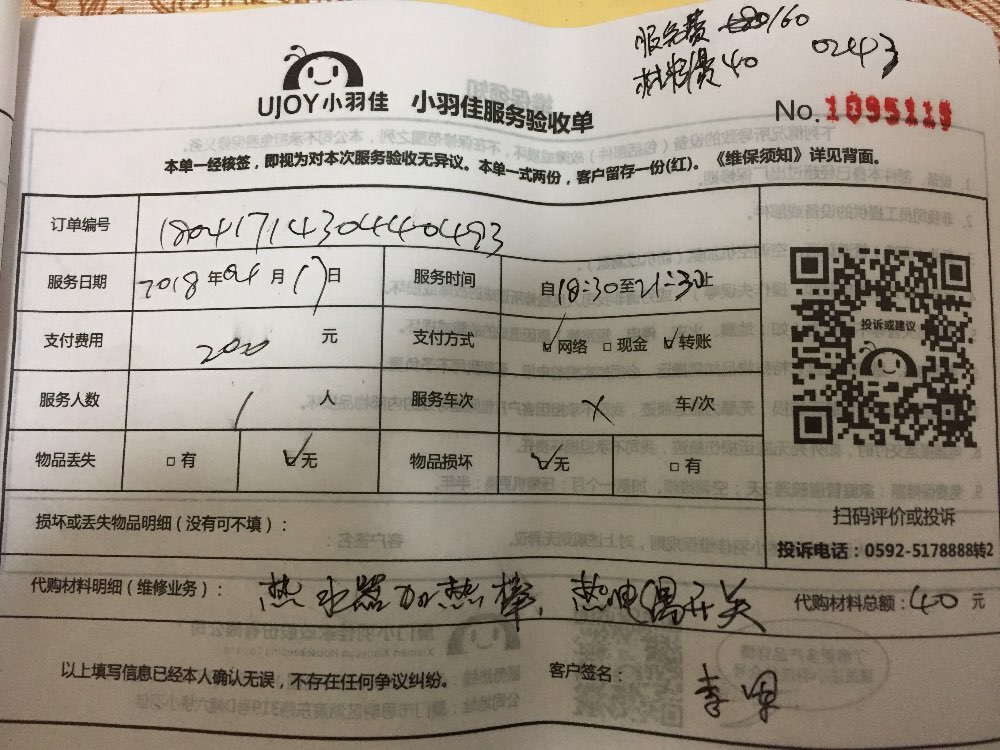 服务费 160
材料费 40
0243
UJOY小羽佳 小羽佳服务验收单
No.1095115
本单一经核签，即视为对本次服务验收无异议。本单一式两份，客户留存一份(红)。《维保须知》详见背面。
订单编号 18041714304440493
服务日期 2018 年 04 月 17 日 服务时间 自18:30至21:30止
支付费用 200 元 支付方式 ☑网络 □现金 ☑转账
服务人数 1 人 服务车次 X 车/次
物品丢失 □有 ☑无 物品损坏 ☑无 □有
投诉或建议
扫码评价或投诉
投诉电话：0592-5178888转2
损坏或丢失物品明细（没有可不填）：
代购材料明细（维修业务）： 热水器加热棒、热电偶开关 代购材料总额：40 元
以上填写信息已经本人确认无误，不存在任何争议纠纷。 客户签名：